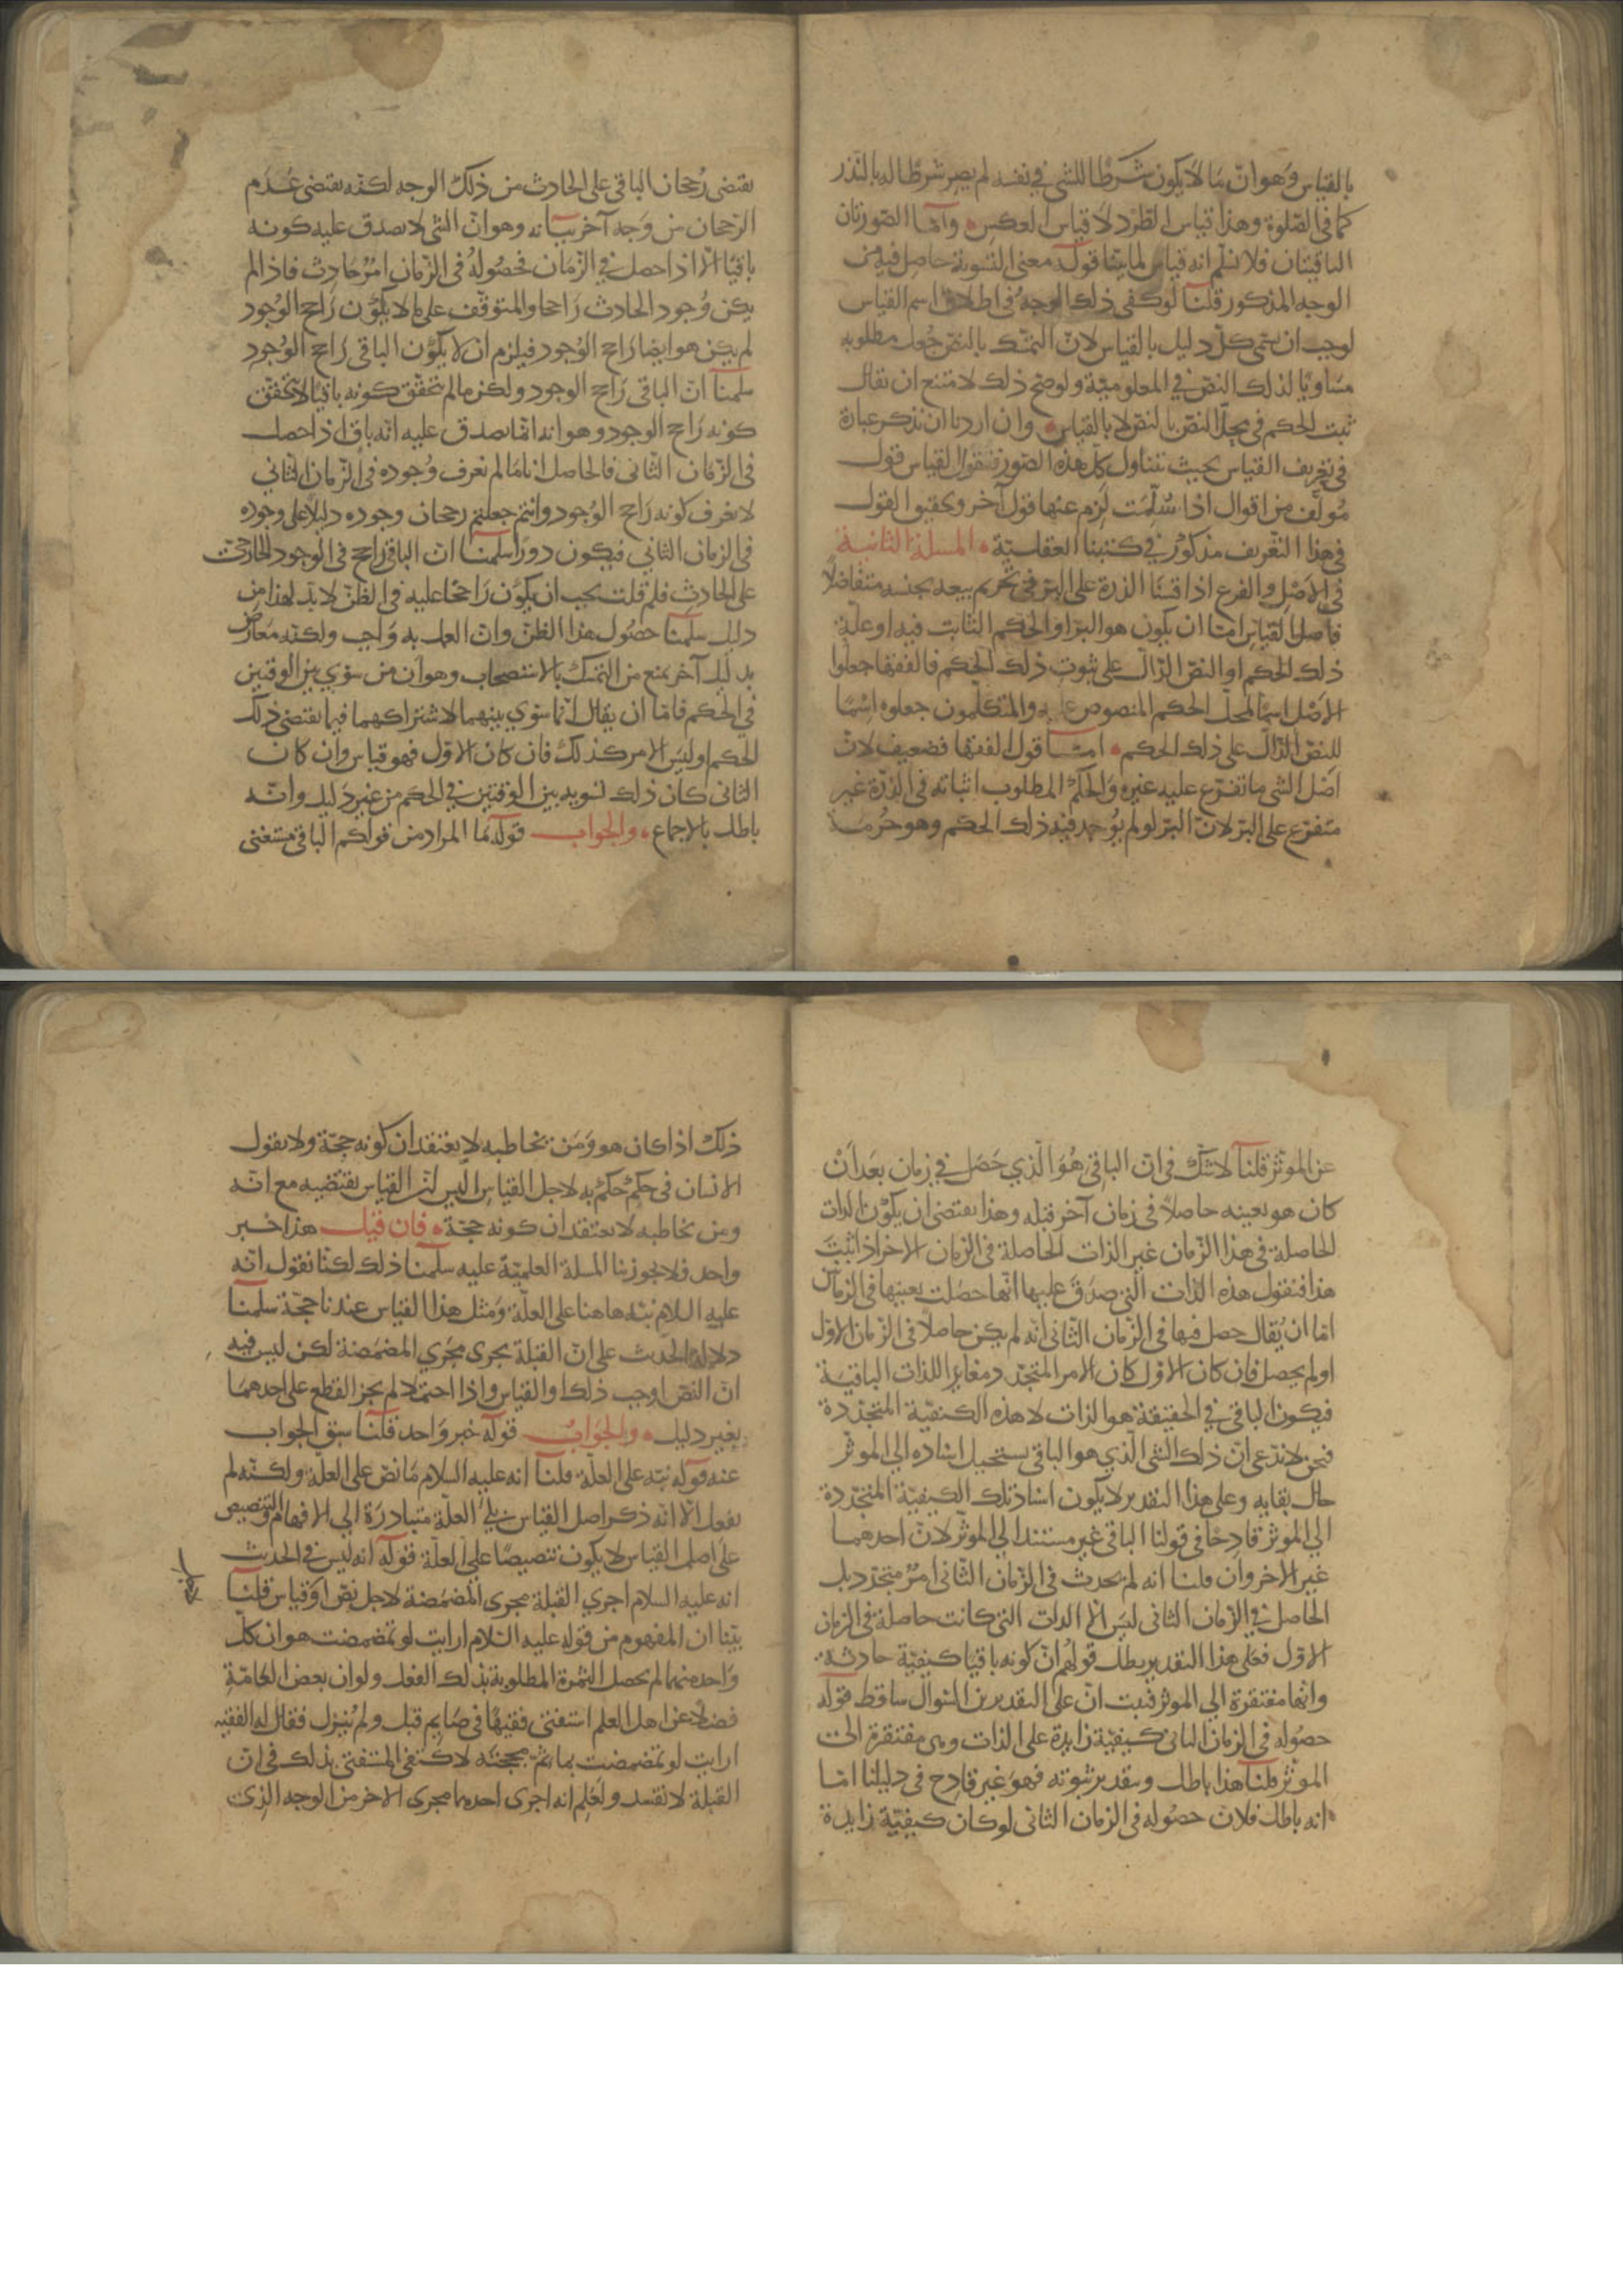 بالقياس وهو ان ما لا يكون شرطا للشى في نفسه لم يصر شرطا له بالنذر
كما في الصلوة وهذا قياس الطرد لا قياس العكس وأما الصورتان
الباقيتان فلا نسلم انه قياس لما بينا قوله معنى التسوية حاصل فيه من
الوجه المذكور قلنا لو كفى ذلك الوجه في اطلاق اسم القياس
لوجب ان يسمى كل دليل بالقياس لان التمسك بالنص جعل مطلوبه
مساويا لذلك النص في المعلومية ولو صح ذلك لامتنع ان يقال
ثبت الحكم في محل النص بالنص لا بالقياس وان اردنا ان نذكر عبارة
في تعريف القياس بحيث تتناول كل هذه الصور فنقول القياس قول
مؤلف من اقوال اذا سلمت لزم عنها قول آخر وتحقيق القول
في هذا التعريف مذكور في كتبنا العقلية المسلة الثانية
في الاصل والفرع اذا قسنا الذرة على البر في تحريم بيعه بجنسه متفاضلا
فاصل القياس اما ان يكون هو البر او الحكم الثابت فيه او علة
ذلك الحكم او النص الدال على ثبوت ذلك الحكم فالفقها جعلوا
الاصل اسما لمحل الحكم المنصوص عليه والمتكلمون جعلوه اسما
للنص الدال على ذلك الحكم امــا قول الفقها فضعيف لان
اصل الشى ما تفرع عليه غيره والحكم المطلوب اثباته في الذرة غير
متفرع على البر لان البر لو لم يوجد فيه ذلك الحكم وهو حرمة
يقتضى رجحان الباقى على الحادث من ذلك الوجه لكنه يقتضى عدم
الرجحان من وجه آخر بيانه وهو ان الشى لا يصدق عليه كونه
باقيا الا اذا حصل في الزمان فحصوله في الزمان امر حادث فاذا لم
يكن وجود الحادث راجحا والمتوقف على ما لا يكون راجح الوجود
لم يكن هو ايضا راجح الوجود فيلزم ان لا يكون الباقى راجح الوجود
سلمنا ان الباقى راجح الوجود ولكن ما لم يتحقق كونه باقيا لا يتحقق
كونه راجح الوجود وهو انه انما يصدق عليه انه باق اذا حصل
في الزمان الثانى فالحاصل انا ما لم نعرف وجوده في الزمان الثاني
لا نعرف كونه راجح الوجود وانتم جعلتم رجحان وجوده دليلا على وجوده
في الزمان الثاني فيكون دورا سلمنا ان الباقى راجح في الوجود الخارجى
على الحادث فلم قلت يجب ان يكون راجحا عليه في الظن لا بد لهذا من
دليل سلمنا حصول هذا الظن وان العمل به واجب ولكنه معارض
بدليل آخر يمنع من التمسك بالاستصحاب وهو ان من سوي بين الوقتين
في الحكم فاما ان يقال انما سوي بينهما لاشتراكهما فيما يقتضى ذلك
الحكم او ليس الامر كذلك فان كان الاول فهو قياس وان كان
الثانى كان ذلك تسوية بين الوقتين في الحكم من غير دليل وانه
باطل بالاجماع والجواب قوله ما المراد من قولكم الباقى مستغنى
عن الموثر قلنا لا شك في ان الباقى هو الذي حصل في زمان بعد ان
كان هو بعينه حاصلا في زمان آخر قبله وهذا يقتضى ان يكون الذات
الحاصلة في هذا الزمان غير الذات الحاصلة في الزمان الاخر اذا ثبت
هذا فنقول هذه الذات التى صدق عليها انها حصلت بعينها في الزمان
اما ان يقال حصل فيها في الزمان الثانى انه لم يكن حاصلا في الزمان الاول
او لم يحصل فان كان الاول كان الامر المتجدد مغايرا للذات الباقية
فيكون الباقى في الحقيقة هو الذات لا هذه الكيفية المتجددة
فنحن لا ندعى ان ذلك الشى الذي هو الباقى يستحيل اسناده الى الموثر
حال بقايه وعلى هذا التقدير لا يكون اسناد تلك الكيفية المتجددة
الي الموثر قادحا في قولنا الباقى غير مستند الى الموثر لان احدهما
غير الاخر وان قلنا انه لم يحدث في الزمان الثانى امر متجدد بل
الحاصل في الزمان الثانى ليس الا الذات التى كانت حاصلة في الزمان
الاول فعلى هذا التقدير بطل قولهم ان كونه باقيا كيفية حادثة
وانها مفتقرة الي الموثر فثبت ان على التقديرين السوال ساقط قوله
حصوله في الزمان الثانى كيفية زايدة على الذات وهى مفتقرة الى
الموثر قلنا هذا باطل وبتقدير ثبوته فهو غير قادح في دليلنا اما
انه باطل فلان حصوله في الزمان الثانى لو كان كيفية زايدة
ذلك اذا كان هو ومن يخاطبه لا يعتقدان كونه حجة ولا يقول
الانسان في حكم حكم به لاجل القياس اليس ان القياس يقتضيه مع انه
ومن يخاطبه لا يعتقدان كونه حجة فان قيل هذا خبر
واحد فلا يجوز بنا المسلة العلمية عليه سلمنا ذلك لكنا نقول انه
عليه السلام نبه هاهنا على العلة ومثل هذا القياس عندنا حجة سلمنا
دلالة الحديث على ان القبلة يجرى مجري المضمضة لكن ليس فيه
ان النص اوجب ذلك او القياس واذا احتمل لم يجز القطع على احدهما
بغير دليل والجواب قوله خبر واحد قلنا سبق الجواب
عنه قوله نبه على العلة قلنا انه عليه السلام ما نص على العلة ولكنه لم
يفعل الا انه ذكر اصل القياس العلة متبادرة الي الافهام والتنصيص
على اصل القياس لا يكون تنصيصا على العلة قوله انه ليس في الحديث
انه عليه السلام اجري القبلة مجرى المضمضة لاجل نص او قياس قلنا
بينا ان المفهوم من قوله عليه السلام ارايت لو تمضمضت هو ان كل
واحد منهما لم يحصل الثمرة المطلوبة بذلك الفعل ولو ان بعض العامة
فضلا عن اهل العلم استفتى فقيها في صايم قبل ولم ينزل فقال له الفقيه
ارايت لو تمضمضت بما ثم مججته لاكتفى المستفتى بذلك في ان
القبلة لا تفسد ولعلم انه اجرى احدهما مجرى الاخر من الوجه الذي